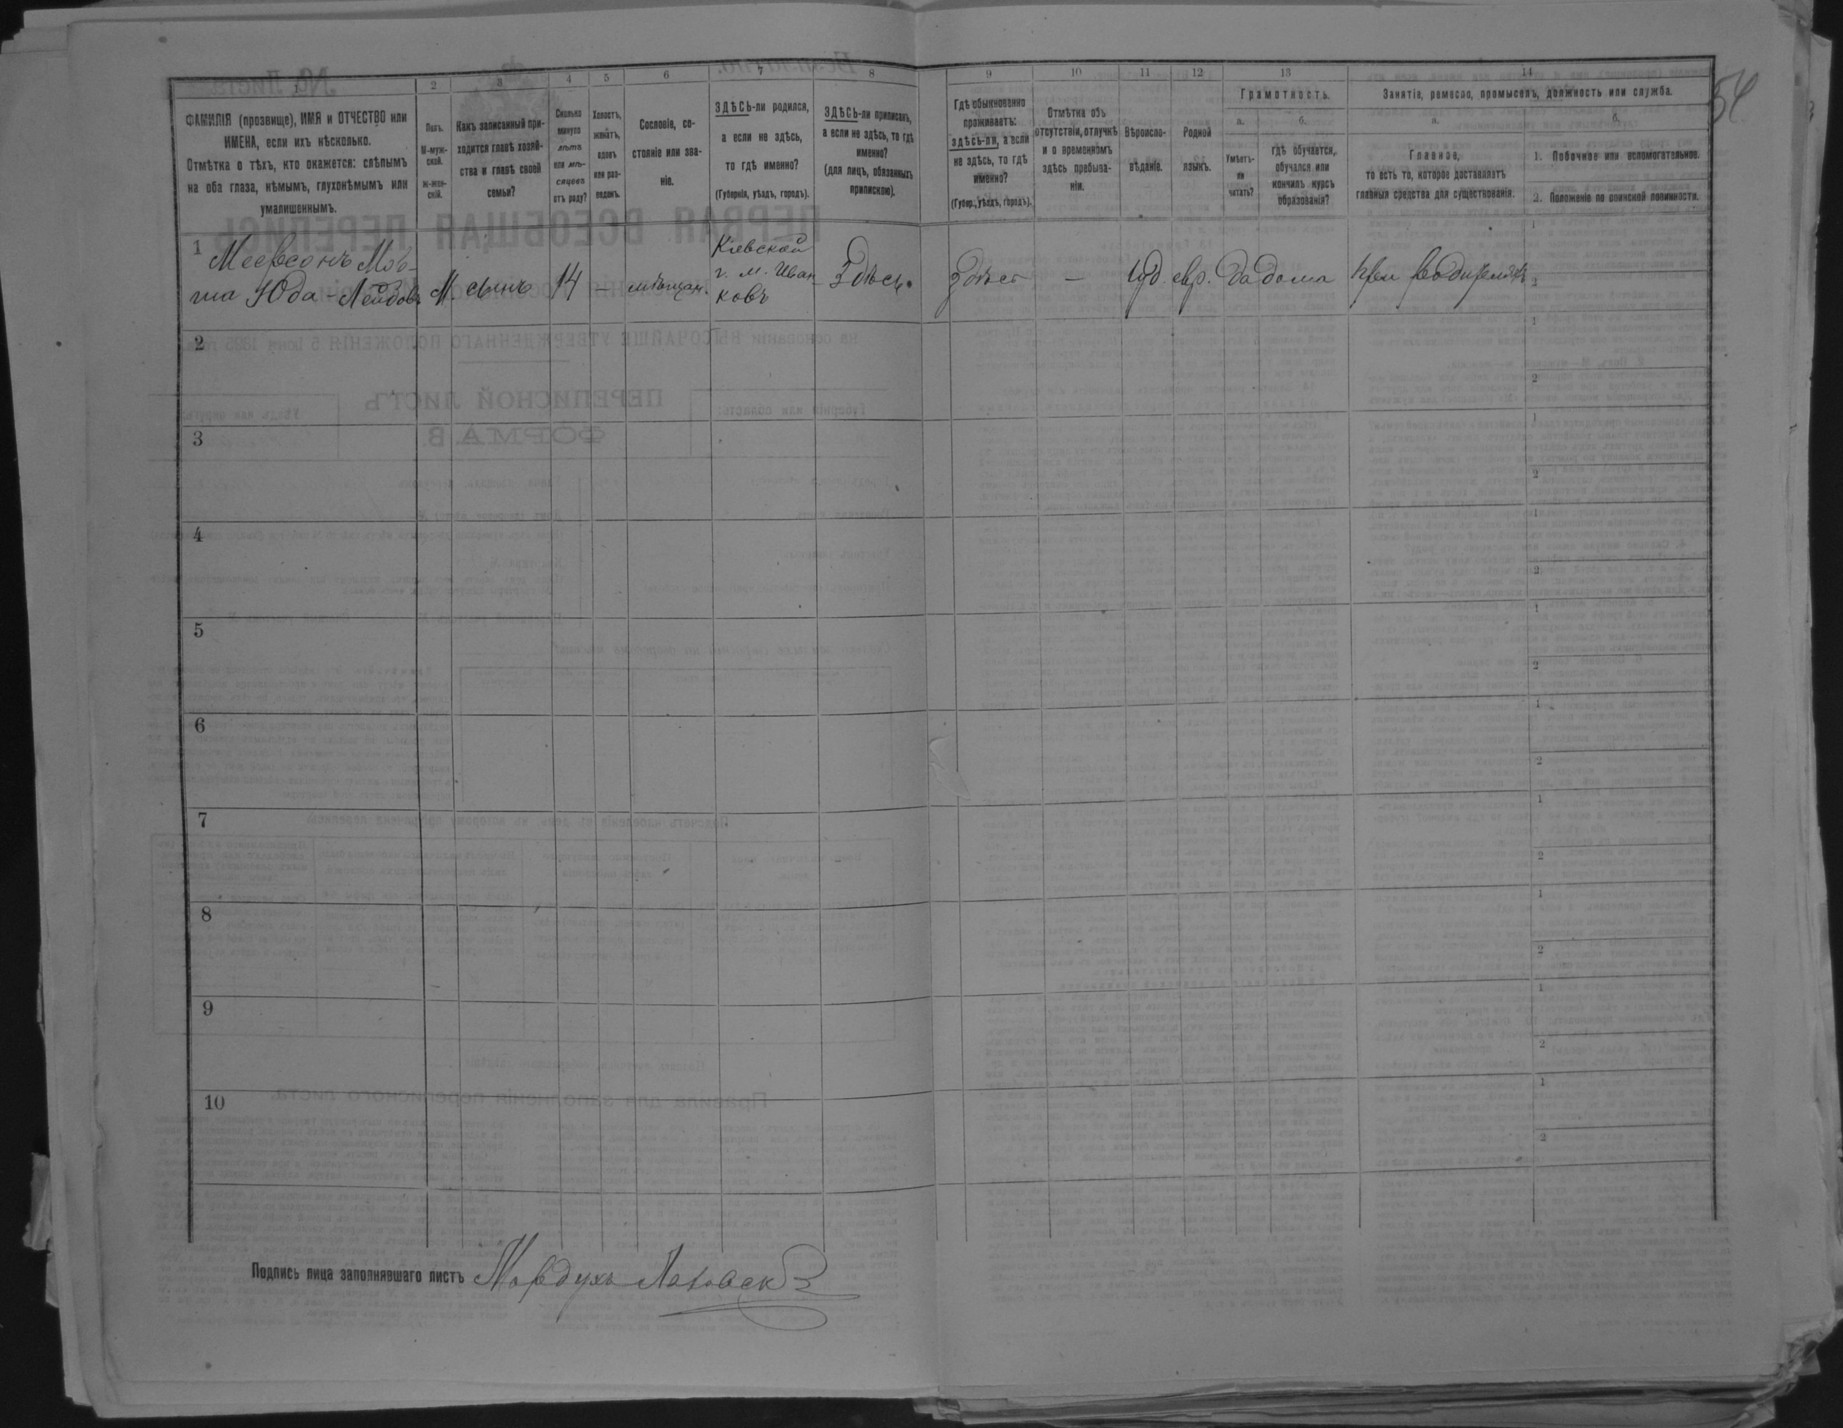 54
1 2 3 4 5 6 7 8 9 10 11 12 13 14
ФАМИЛІЯ (прозвище), ИМЯ и ОТЧЕСТВО или
ИМЕНА, если ихъ нѣсколько.
Отмѣтка о тѣхъ, кто окажется: слѣпымъ
на оба глаза, нѣмымъ, глухонѣмымъ или
умалишеннымъ.
Полъ.
М-муж-
ской.
ж-жен-
скій.
Какъ записанный при-
ходится главѣ хозяй-
ства и главѣ своей
семьи?
Сколько
минуло
лѣтъ
или мѣ-
сяцевъ
отъ роду?
Холостъ,
женатъ,
вдовъ
или раз-
веденъ.
Сословіе, со-
стояніе или зва-
ніе.
ЗДѢСЬ-ли родился,
а если не здѣсь,
то гдѣ именно?
(Губернія, уѣздъ, городъ).
ЗДѢСЬ-ли приписанъ,
а если не здѣсь, то гдѣ
именно?
(для лицъ, обязанныхъ
припискою).
Гдѣ обыкновенно
проживаетъ:
здѣсь-ли, а если
не здѣсь, то гдѣ
именно?
(Губер., уѣздъ, городъ).
Отмѣтка объ
отсутствіи, отлучкѣ
и о временномъ
здѣсь пребыва-
ніи.
Вѣроиспо-
вѣданіе.
Родной
языкъ.
Грамотность.
а.
Умѣетъ-
ли
читать?
б.
гдѣ обучается,
обучался или
кончилъ курсъ
образованія?
Занятіе, ремесло, промыселъ, должность или служба.
а.
Главное,
то есть то, которое доставляетъ
главныя средства для существованія.
б.
1. Побочное или вспомогательное.
2. Положеніе по воинской повинности.
1 Меерсонъ Мов-
ша Юда-Лейбовъ
М.
сынъ
14
—
мѣщан.
Кіевской
г. м. Иван-
ковъ
Здѣсь
Здѣсь
—
Іуд.
евр.
Да
дома
при родителяхъ
2
3
4
5
6
7
8
9
10
Подпись лица заполнявшаго листъ Мордухъ